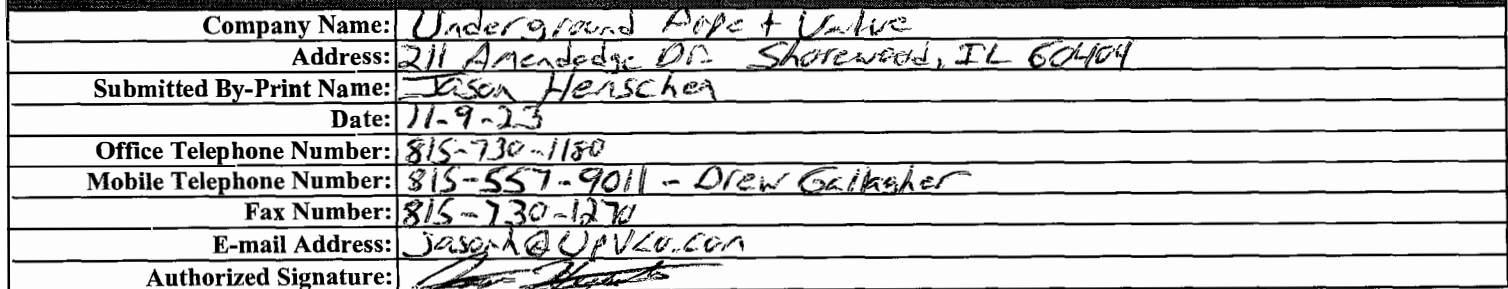 Company Name: Underground Pipe + Valve
Address: 211 Amendodge Dr. Shorewood, IL 60404
Submitted By-Print Name: Jason Henschen
Date: 11-9-23
Office Telephone Number: 815-730-1180
Mobile Telephone Number: 815-557-9011 - Drew Gallagher
Fax Number: 815-730-1270
E-mail Address: jasonh@UpVCo.com
Authorized Signature: